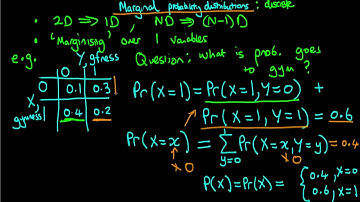 Marginal probability distributions: discrete
• 2D ⟹ 1D, ND ⟹ (N-1)D
• 'Marginising' over 1 variables
e.g. Y, gfness
Question: what is prob. goes to gym?
0 1
0 0.1 0.3
X, gymness 1 0.4 0.2
Pr(X=1) = Pr(X=1, Y=0) +
Pr(X=1, Y=1) = 0.6
Pr(X=x) = ∑ y=0 Pr(X=x, Y=y) = 0.4
0 0
P(X)=Pr(X) = { 0.4, X=0
0.6, X=1